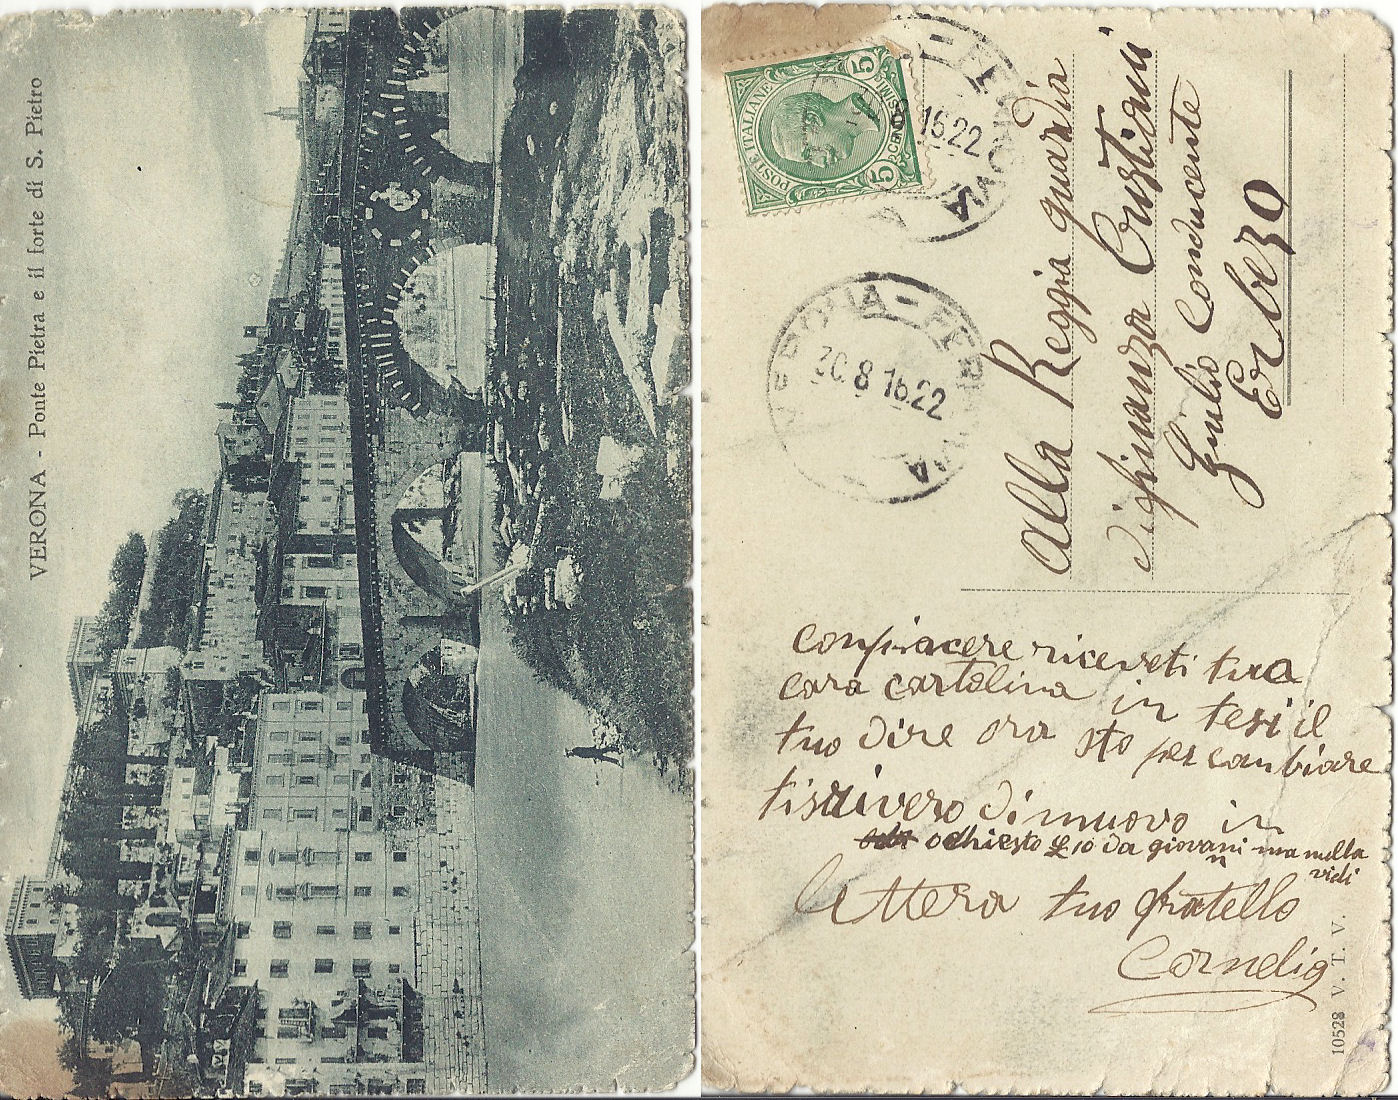 VERONA - Ponte Pietra e il forte di S. Pietro
POSTE ITALIANE
CENTESIMI
5
5
VERONA - FERROVIA
16.22
30.8 16.22
Alla Reggia guardia
difinanza Cristiani
Giulio Conducente
Erbezo
conpiacere riceveti tua
cara cartolina in tesi il
tuo dire ora sto per canbiare
tiscrivero di nuovo in
o chiesto £ 10 da giovanni ma nulla
vidi
lettera tuo fratello
Cornelio
10528 V. T. V.